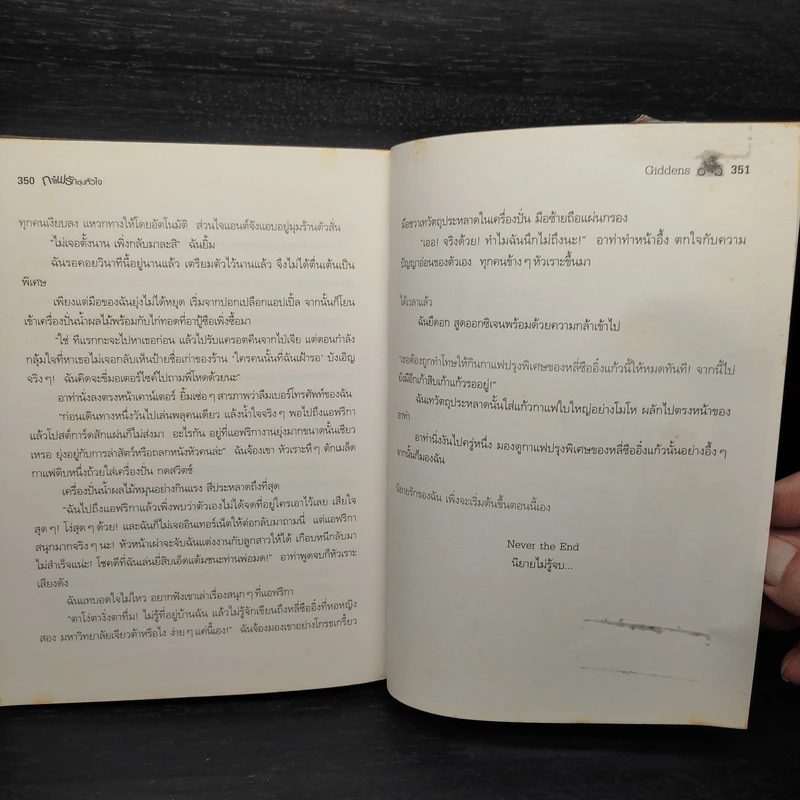 350 กาแฟรักอุ่นหัวใจ
ทุกคนเงียบลง แหวกทางให้โดยอัตโนมัติ ส่วนไจแอนต์จังแอบอยู่มุมร้านตัวสั่น
"ไม่เจอตั้งนาน เพิ่งกลับมาละสิ" ฉันยิ้ม
ฉันรอคอยวินาทีนี้อยู่นานแล้ว เตรียมตัวไว้นานแล้ว จึงไม่ได้ตื่นเต้นเป็น
พิเศษ
เพียงแต่มือของฉันยุ่งไม่ได้หยุด เริ่มจากปอกเปลือกแอปเปิ้ล จากนั้นก็โยน
เข้าเครื่องปั่นน้ำผลไม้พร้อมกับไก่ทอดที่อาปู้ซื้อเพิ่งซื้อมา
"ใช่ ทีแรกกะจะไปหาเธอก่อน แล้วไปรับแครอตคืนจากไป๋เจีย แต่ตอนกำลัง
กลุ้มใจที่หาเธอไม่เจอกลับเห็นป้ายชื่อเก่าของร้าน 'ใครคนนั้นที่ฉันเฝ้ารอ' บังเอิญ
จริงๆ! ฉันคิดจะขี่มอเตอร์ไซค์ไปถามพี่โหดด้วยนะ"
อาท่านั่งลงตรงหน้าเคาน์เตอร์ ยิ้มเซ่อๆ สารภาพว่าลืมเบอร์โทรศัพท์ของฉัน
"ก่อนเดินทางหนึ่งวันไปเล่นพลุคนเดียว แล้งน้ำใจจริงๆ พอไปถึงแอฟริกา
แล้วโปสต์การ์ดสักแผ่นก็ไม่ส่งมา อะไรกัน อยู่ที่แอฟริกางานยุ่งมากขนาดนั้นเชียว
เหรอ ยุ่งอยู่กับการล่าสัตว์หรือถลกหนังหัวคนล่ะ" ฉันจ้องเขา หัวเราะหึๆ ตักเมล็ด
กาแฟดิบหนึ่งถ้วยใส่เครื่องปั่น กดสวิตช์
เครื่องปั่นน้ำผลไม้หมุนอย่างกินแรง สีประหลาดถึงที่สุด
"ฉันไปถึงแอฟริกาแล้วเพิ่งพบว่าตัวเองไม่ได้จดที่อยู่ใครเอาไว้เลย เสียใจ
สุดๆ! โง่สุดๆ ด้วย! และฉันก็ไม่เจออินเทอร์เน็ตให้ต่อกลับมาถามนี่ แต่แอฟริกา
สนุกมากจริงๆ นะ! หัวหน้าเผ่าจะจับฉันแต่งงานกับลูกสาวให้ได้ เกือบหนีกลับมา
ไม่สำเร็จแน่ะ! โชคดีที่ฉันเล่นยี่สิบเอ็ดแต้มชนะท่านพ่อมด!" อาท่าพูดจบก็หัวเราะ
เสียงดัง
ฉันแทบอดใจไม่ไหว อยากฟังเขาเล่าเรื่องสนุกๆ ที่แอฟริกา
"ตาโง่ตางั่งตาทึ่ม! ไม่รู้ที่อยู่บ้านฉัน แล้วไม่รู้จักเขียนถึงหลี่ซืออิ๋งที่หอหญิง
สอง มหาวิทยาลัยเจียวต้าหรือไง ง่ายๆ แค่นี้เอง!" ฉันจ้องมองเขาอย่างโกรธเกรี้ยว
Giddens 351
มือขวาเทวัตถุประหลาดในเครื่องปั่น มือซ้ายถือแผ่นกรอง
"เออ! จริงด้วย! ทำไมฉันนึกไม่ถึงนะ!" อาท่าทำหน้าอึ้ง ตกใจกับความ
ปัญญาอ่อนของตัวเอง ทุกคนข้างๆ หัวเราะขึ้นมา
ได้เวลาแล้ว
ฉันยืดอก สูดออกซิเจนพร้อมด้วยความกล้าเข้าไป
"เธอต้องถูกทำโทษให้กินกาแฟปรุงพิเศษของหลี่ซืออิ๋งแก้วนี้ให้หมดทันที! จากนี้ไป
ยังมีอีกเก้าสิบเก้าแก้วรออยู่!"
ฉันเทวัตถุประหลาดนั้นใส่แก้วกาแฟใบใหญ่อย่างโมโห ผลักไปตรงหน้าของ
อาท่า
อาท่านิ่งงันไปครู่หนึ่ง มองดูกาแฟปรุงพิเศษของหลี่ซืออิ๋งแก้วนั้นอย่างอึ้งๆ
จากนั้นก็มองฉัน
นิยายรักของฉัน เพิ่งจะเริ่มต้นขึ้นตอนนี้เอง
Never the End
นิยายไม่รู้จบ...